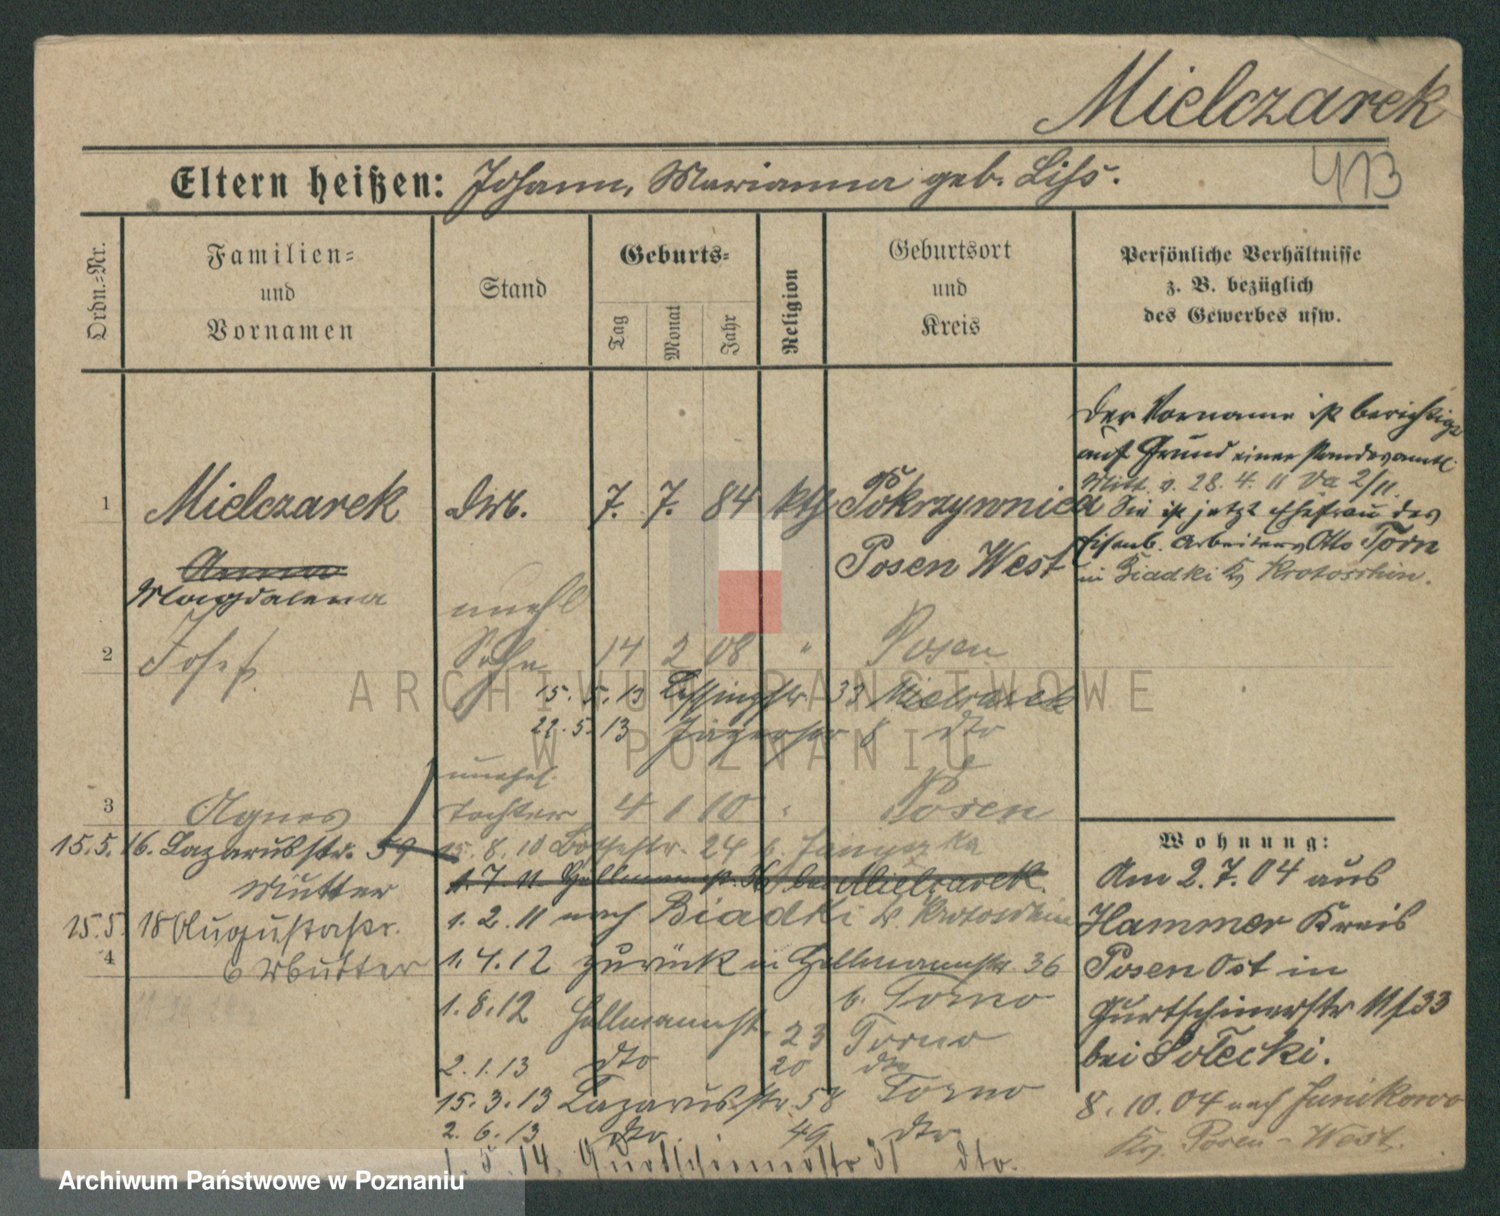 Mielczarek
413
Eltern heißen: Johann, Marianna geb. Liss.
Ordn.=Nr.
Familien= und Vornamen
Stand
Geburts=
Tag
Monat
Jahr
Religion
Geburtsort und Kreis
Persönliche Verhältnisse
z. B. bezüglich
des Gewerbes usw.
Der Vorname ist berichtigt
auf Grund einer standesamtl.
Mitt. v. 28. 4. 11 Va 2/11.
1 Mielczarek 7. 7. 84 kth Pokrzywnica
Sie ist jetzt Ehefrau des
Posen West
Eisenb. Arbeiters Otto Torn
in Biadki Kr. Krotoschin.
Anna
Magdalena
unehl
2 Josef Sohn 14 2 08 " Posen
15. 5. 13 Lessingstr 33 Mielczarek
22. 5. 13 Jägerstr 8 dto
unehel.
3 Agnes Tochter 4 1 10 " Posen
15. 5. 16. Lazarusstr. 59
Mutter
15. 5. 18 Augustastr.
4 6 Mutter
15. 8. 10 24 b.
1. 7. 11. Hellmannstr. 36 bei Mielczarek.
1. 2. 11 nach Biadki Kr. Krotoschin
1. 4. 12 zurück in Hellmannstr. 36
b. Torno
1. 8. 12 Hellmannstr. 23 Torno
2. 1. 13 dto 20 dto
15. 3. 13 Lazarusstr. 58 Torno
2. 6. 13 dto. 49 dto.
1. 5. 14. Gurtschinerstr 31 dto.
Wohnung:
Am 2. 7. 04 aus
Hammer Kreis
Posen Ost in
Gurtschinerstr
bei Solecki.
8. 10. 04 nach Junikowo
Kr. Posen-West.
ARCHIWUM PAŃSTWOWE
W POZNANIU
Archiwum Państwowe w Poznaniu